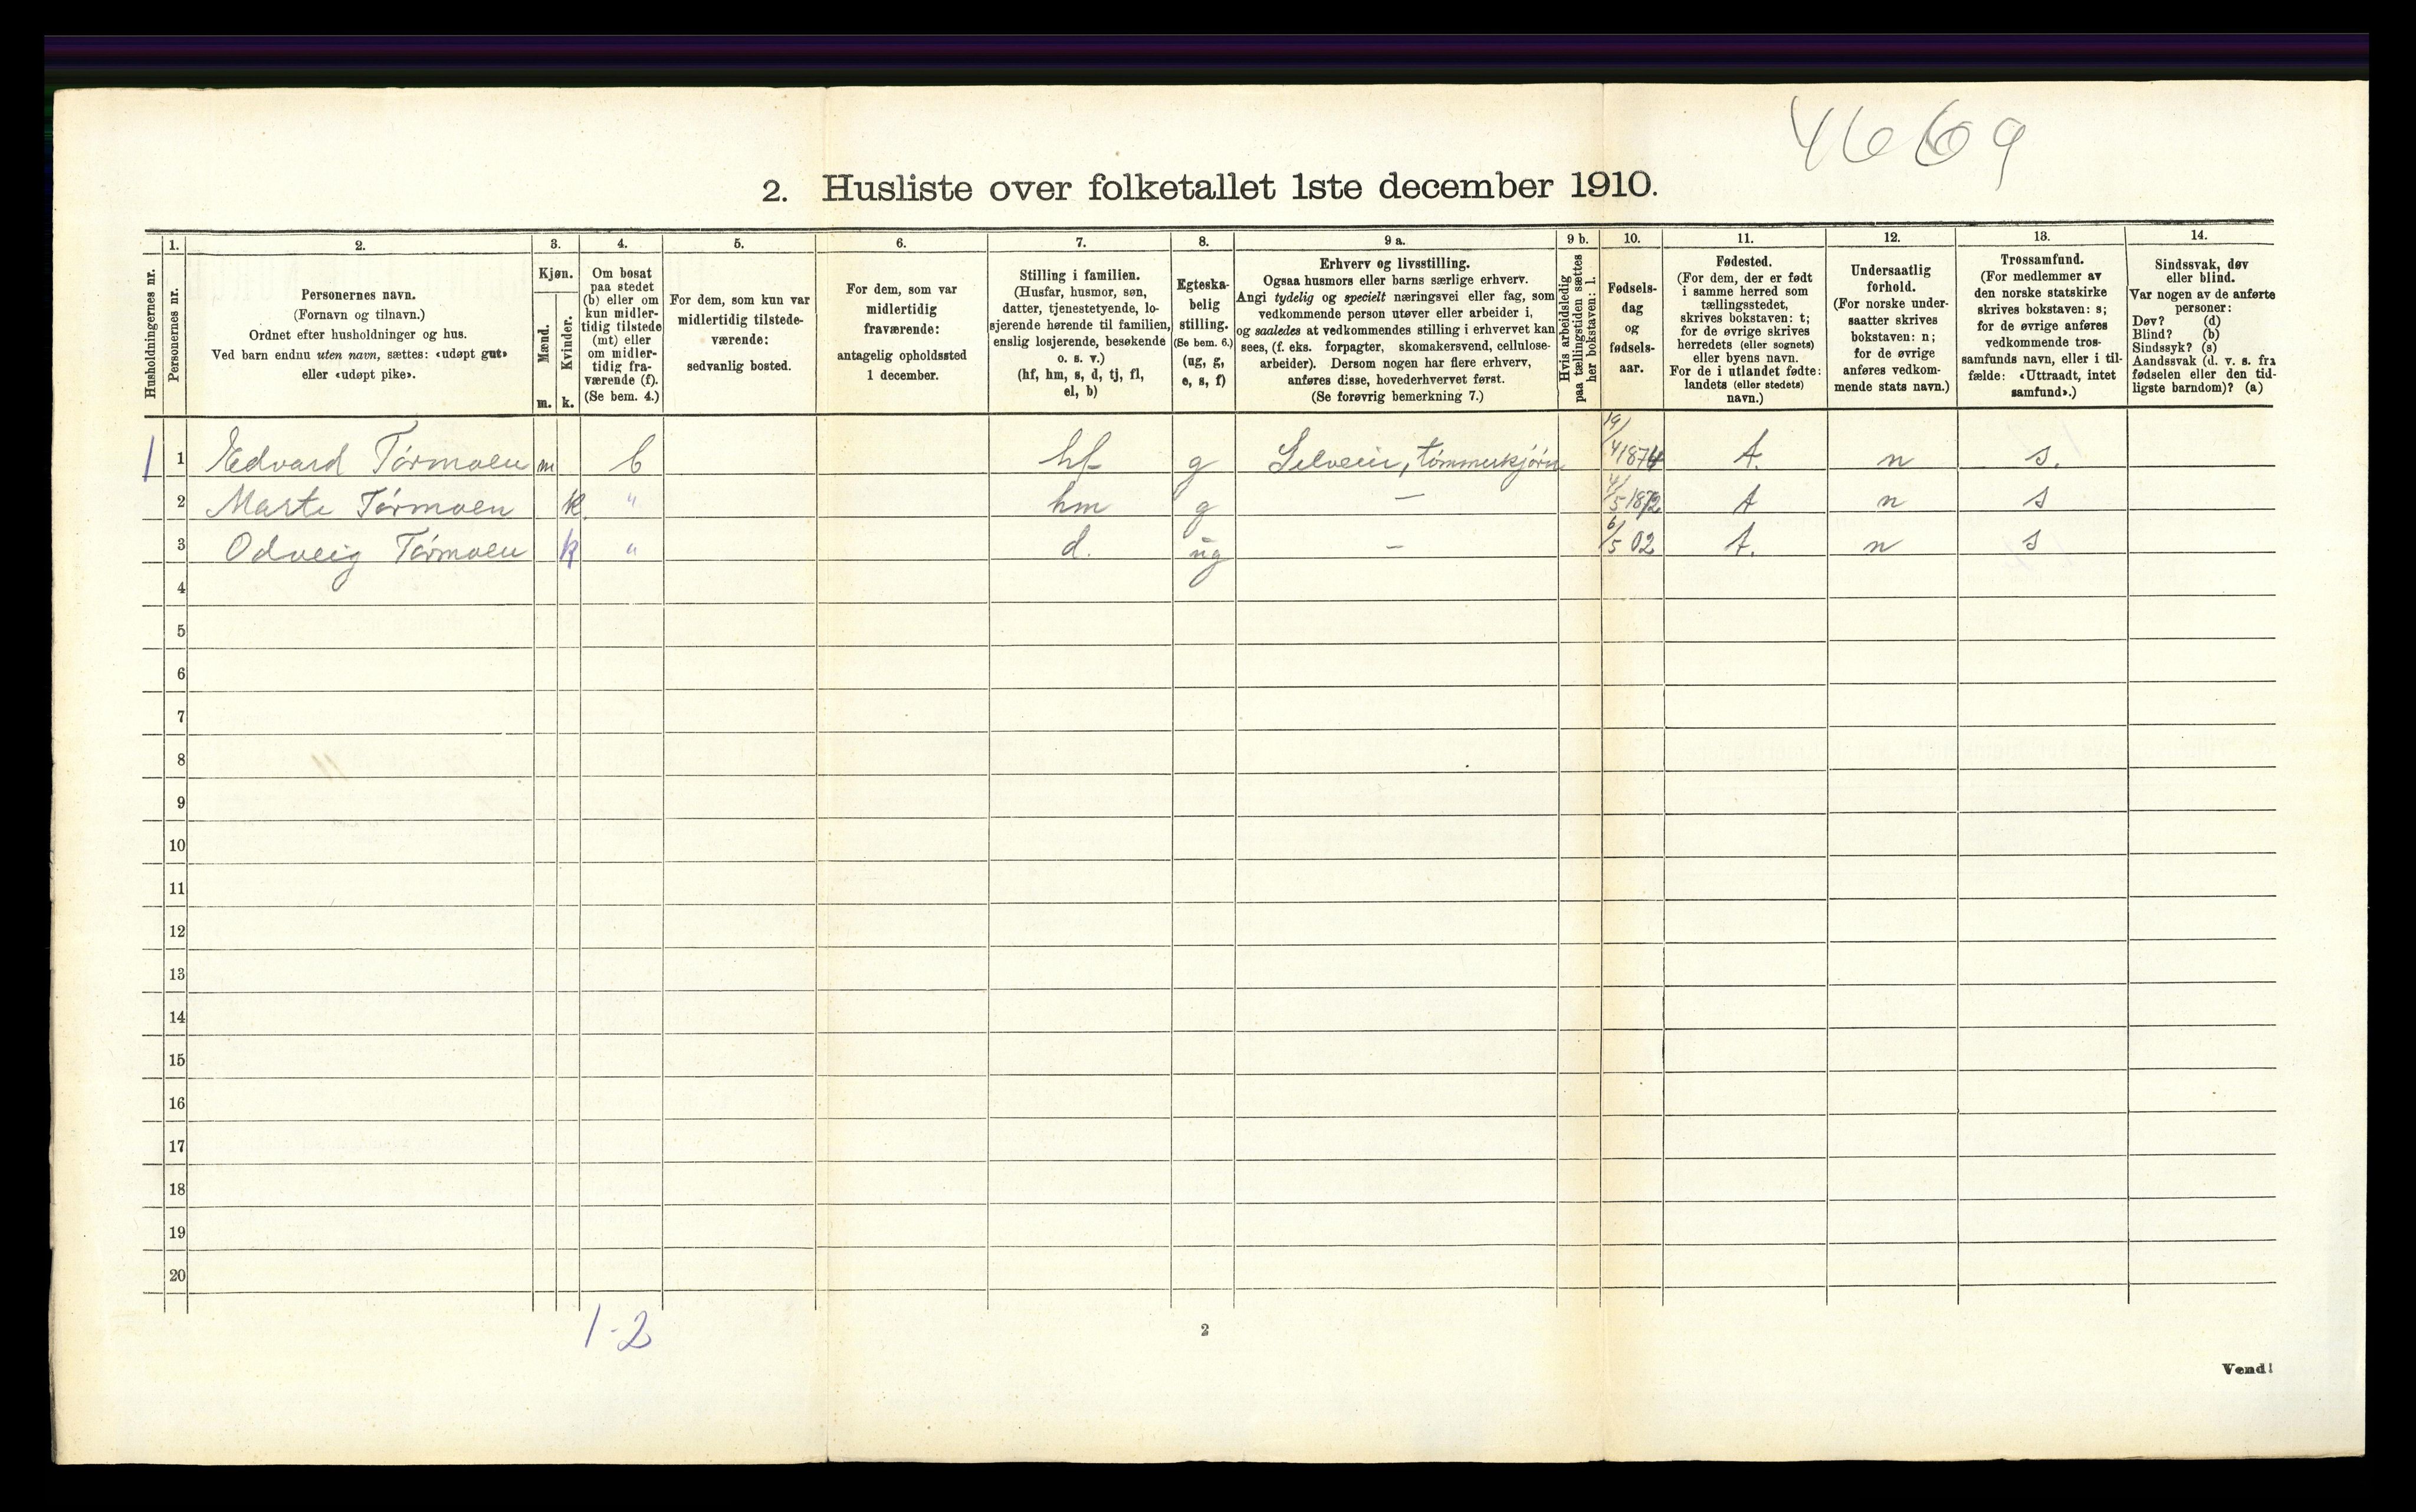 4669
2. Husliste over folketallet 1ste december 1910.
Husholdningernes nr.
1.
Personernes nr.
2.
Personernes navn.
(Fornavn og tilnavn.)
Ordnet efter husholdninger og hus.
Ved barn endnu uten navn, sættes: «udøpt gut»
eller «udøpt pike».
3.
Kjøn.
Mænd.
m.
Kvinder.
k.
4.
Om bosat
paa stedet
(b) eller om
kun midler-
tidig tilstede
(mt) eller
om midler-
tidig fra-
værende (f).
(Se bem. 4.)
5.
For dem, som kun var
midlertidig tilstede-
værende:
sedvanlig bosted.
6.
For dem, som var
midlertidig
fraværende:
antagelig opholdssted
1 december.
7.
Stilling i familien.
(Husfar, husmor, søn,
datter, tjenestetyende, lo-
sjerende hørende til familien,
enslig losjerende, besøkende
o. s. v.)
(hf, hm, s, d, tj, fl,
el, b)
8.
Egteska-
belig
stilling.
(Se bem. 6.)
(ug, g,
e, s, f)
9 a.
Erhverv og livsstilling.
Ogsaa husmors eller barns særlige erhverv.
Angi tydelig og specielt næringsvei eller fag, som
vedkommende person utøver eller arbeider i,
og saaledes at vedkommendes stilling i erhvervet kan
sees, (f. eks. forpagter, skomakersvend, cellulose-
arbeider). Dersom nogen har flere erhverv,
anføres disse, hovederhvervet først.
(Se forøvrig bemerkning 7.)
9 b.
Hvis arbeidsledig
paa tællingstiden sættes
her bokstaven: l.
10.
Fødsels-
dag
og
fødsels-
aar.
11.
Fødested.
(For dem, der er født
i samme herred som
tællingsstedet,
skrives bokstaven: t;
for de øvrige skrives
herredets (eller sognets)
eller byens navn.
For de i utlandet fødte:
landets (eller stedets)
navn.)
12.
Undersaatlig
forhold.
(For norske under-
saatter skrives
bokstaven: n;
for de øvrige
anføres vedkom-
mende stats navn.)
13.
Trossamfund.
(For medlemmer av
den norske statskirke
skrives bokstaven: s;
for de øvrige anføres
vedkommende tros-
samfunds navn, eller i til-
fælde: «Uttraadt, intet
samfund».)
14.
Sindssvak, døv
eller blind.
Var nogen av de anførte
personer:
Døv? (d)
Blind? (b)
Sindssyk? (s)
Aandssvak (d. v. s. fra
fødselen eller den tid-
ligste barndom)? (a)
1 1 Edvard Tórmoen m b hf g Selveier, tømmerkjører 19/4 1874 t. n s.
2 Marte Tórmoen k. " hm g — 4/5 1872 t n s
3 Odveig Tórmoen k " d. ug — 6/5 02 t. n s
4
5
6
7
8
9
10
11
12
13
14
15
16
17
18
19
20
1-2
2
Vend!